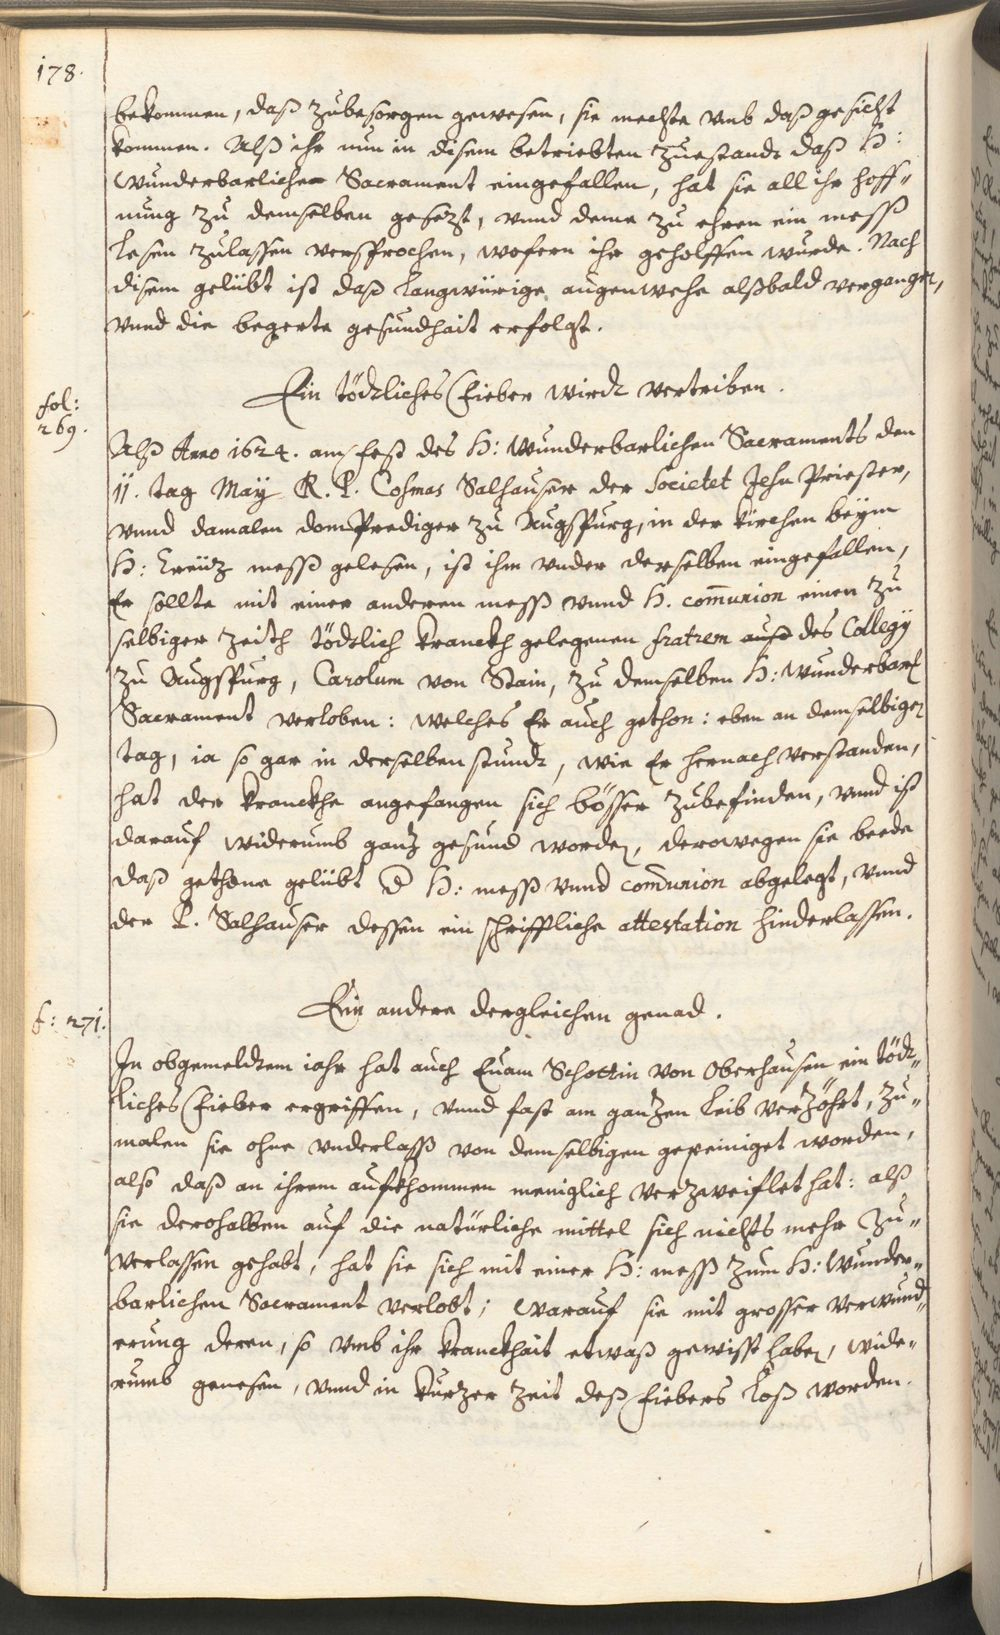 178.
bekommen, daß zubesorgen gewesen, sie mechte vmb daß gesicht
kommen. Alß ihr nun in disem betriebten zuestandt daß H:
Wunderbarliche Sacrament eingefallen, hat sie all ihr hoff„
nung zu demselben gesezt, vnnd deme zu ehren ein mess
lesen zulassen versprochen, wofern ihr geholffen wurde. Nach
disem gelübt ist daß langwürige augenwehe alßbald vergangen,
vnnd die begerte gesundhait erfolgt.
Ein tödtliches Fieber wirdt vertriben.
fol:
269.
Alß Anno 1624. am fest des H: Wunderbarlichen Sacraments den
11. tag Maÿ R. P. Cosmas Salhauser der Societet Jesu Priester,
vnnd damalen dom Prediger zu Augspurg, in der kirchen beÿm
H: Creütz mess gelesen, ist ihm vnder derselben eingefallen,
Er sollte mit einer anderen mess vnnd H. com̄union einen zu
selbiger zeith tödtlich kranckh gelegenen fratrem auß des Collegÿ
zu Augspurg, Carolum von Stain, zu demselben H: Wunderbarl
Sacrament verloben: welches Er auch gethon: eben an demselbigen
tag, ia so gar in derselben stundt, wie Er hernach verstanden,
hat der kranckhe angefangen sich bösser zubefinden, vnnd ist
darauf widerumb ganz gesund worden, derowegen sie beede
daß gethone gelübt d H: mess vnnd com̄union abgelegt, vnnd
der P. Salhauser dessen ein schrifftliche attestation hinderlassen.
Ein andere dergleichen genad.
f: 271.
In obgemeldtem iahr hat auch Euam Schottin von Oberhausen ein tödt„
liches Fieber ergriffen, vnnd fast am ganzen leib verzöhrt, zu„
malen sie ohne vnderlass von demselbigen gepeiniget worden,
also daß an ihrem aufkhommen meniglich verzweiflet hat: alß
sie derohalben auf die natürliche mittel sich nichts mehr zu„
verlassen gehabt, hat sie sich mit einer H: mess zum H: Wunder„
barlichen Sacrament verlobt; warauf sie mit grosser verwund„
erung deren, so vmb ihr kranckhait etwaß gewisst haben, wide„
rumb genesen, vnnd in kurzer zeit deß Fiebers loß worden.